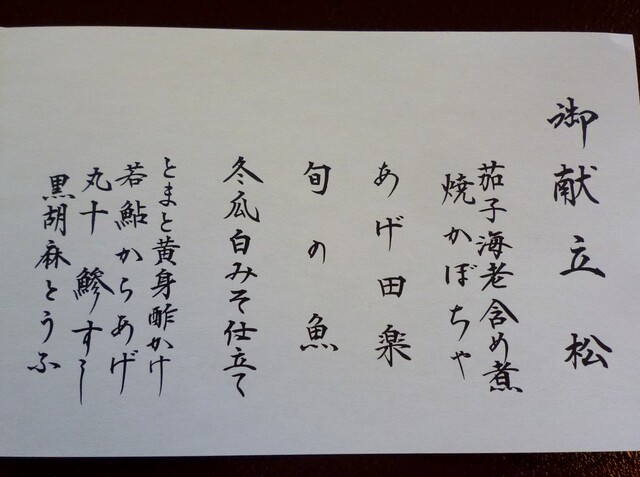 御献立 松
茄子海老含め煮
焼かぼちゃ
あげ田楽
旬の魚
冬瓜白みそ仕立て
とまと黄身酢かけ
若鮎からあげ
丸十 鯵すし
黒胡麻とうふ